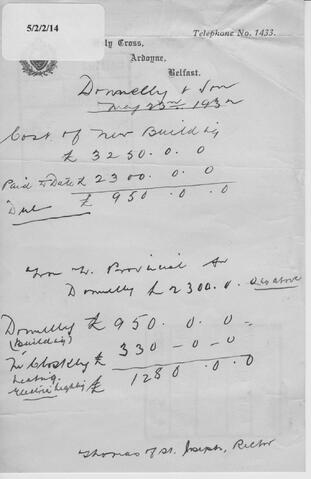 5/2/2/14
Telephone No. 1433.
ly Cross,
Ardoyne,
Belfast.
Donnelly & Son
May 23rd 193
Cost of New Building
£ 3250. 0. 0
Paid to Date £ 2300. 0. 0
Due £ 950. 0. 0
Provincial
Donnelly £ 2300. 0. as above
Donnelly £ 950. 0. 0
(Building)
McCloskey £ 330 - 0 - 0
Heating £ 1280. 0. 0
Electric Lighting
Thomas of St. Joseph, Rector